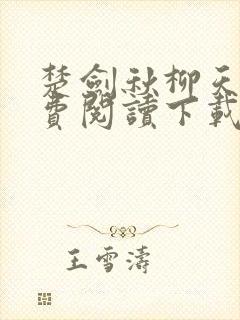 楚劍秋柳天
費閱讀下載
王雪濤